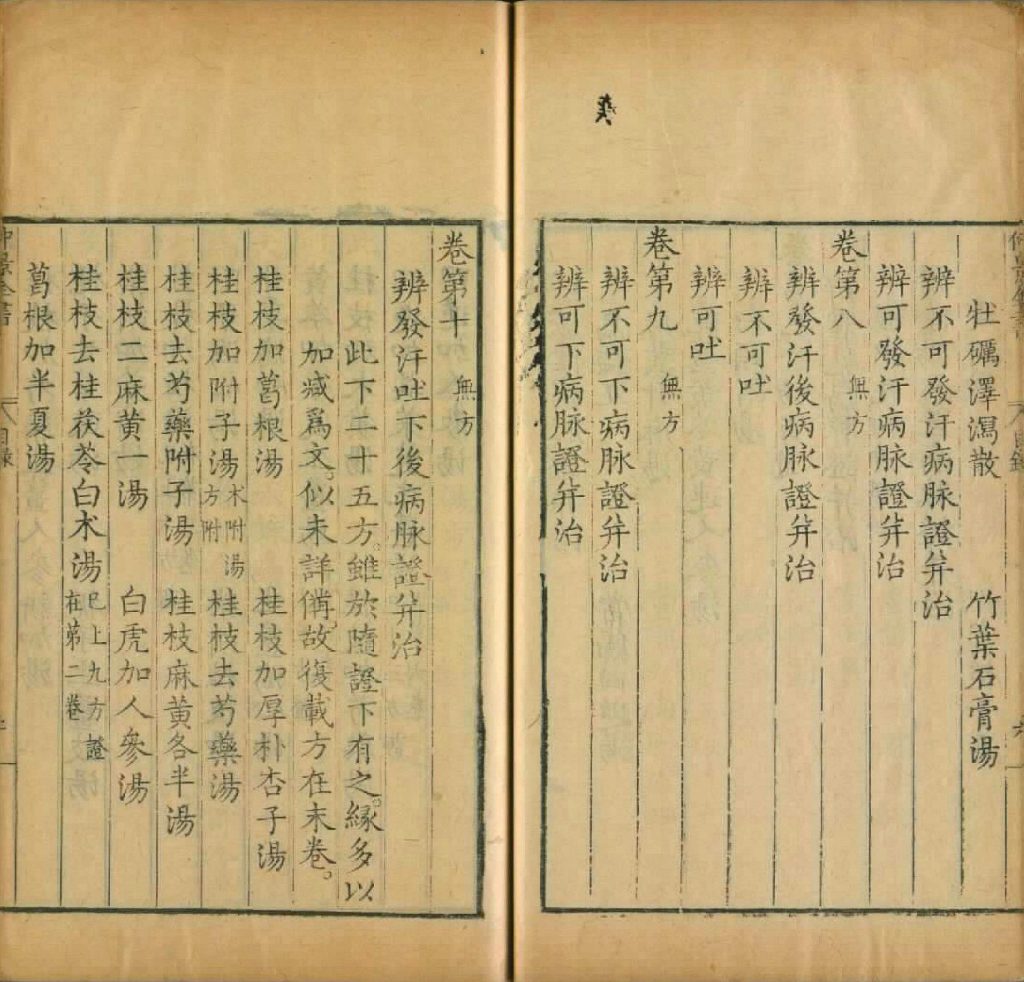 牡礪澤瀉散　竹葉石膏湯
辨不可發汗病脉證并治
辨可發汗病脉證并治
卷第八　無方
辨發汗後病脉證并治
辨不可吐
辨可吐
卷第九　無方
辨不可下病脉證并治
辨可下病脉證并治
卷第十　無方
辨發汗吐下後病脉證并治
此下二十五方。雖於隨證下有之。緣多以
加減爲文。似未詳備。故復載方在末卷。
桂枝加葛根湯　桂枝加厚朴杏子湯
桂枝加附子湯　朮附湯方附　桂枝去芍藥湯
桂枝去芍藥附子湯　桂枝麻黄各半湯
桂枝二麻黄一湯　白虎加人參湯
桂枝去桂茯苓白朮湯　已上九方證在第二卷
葛根加半夏湯